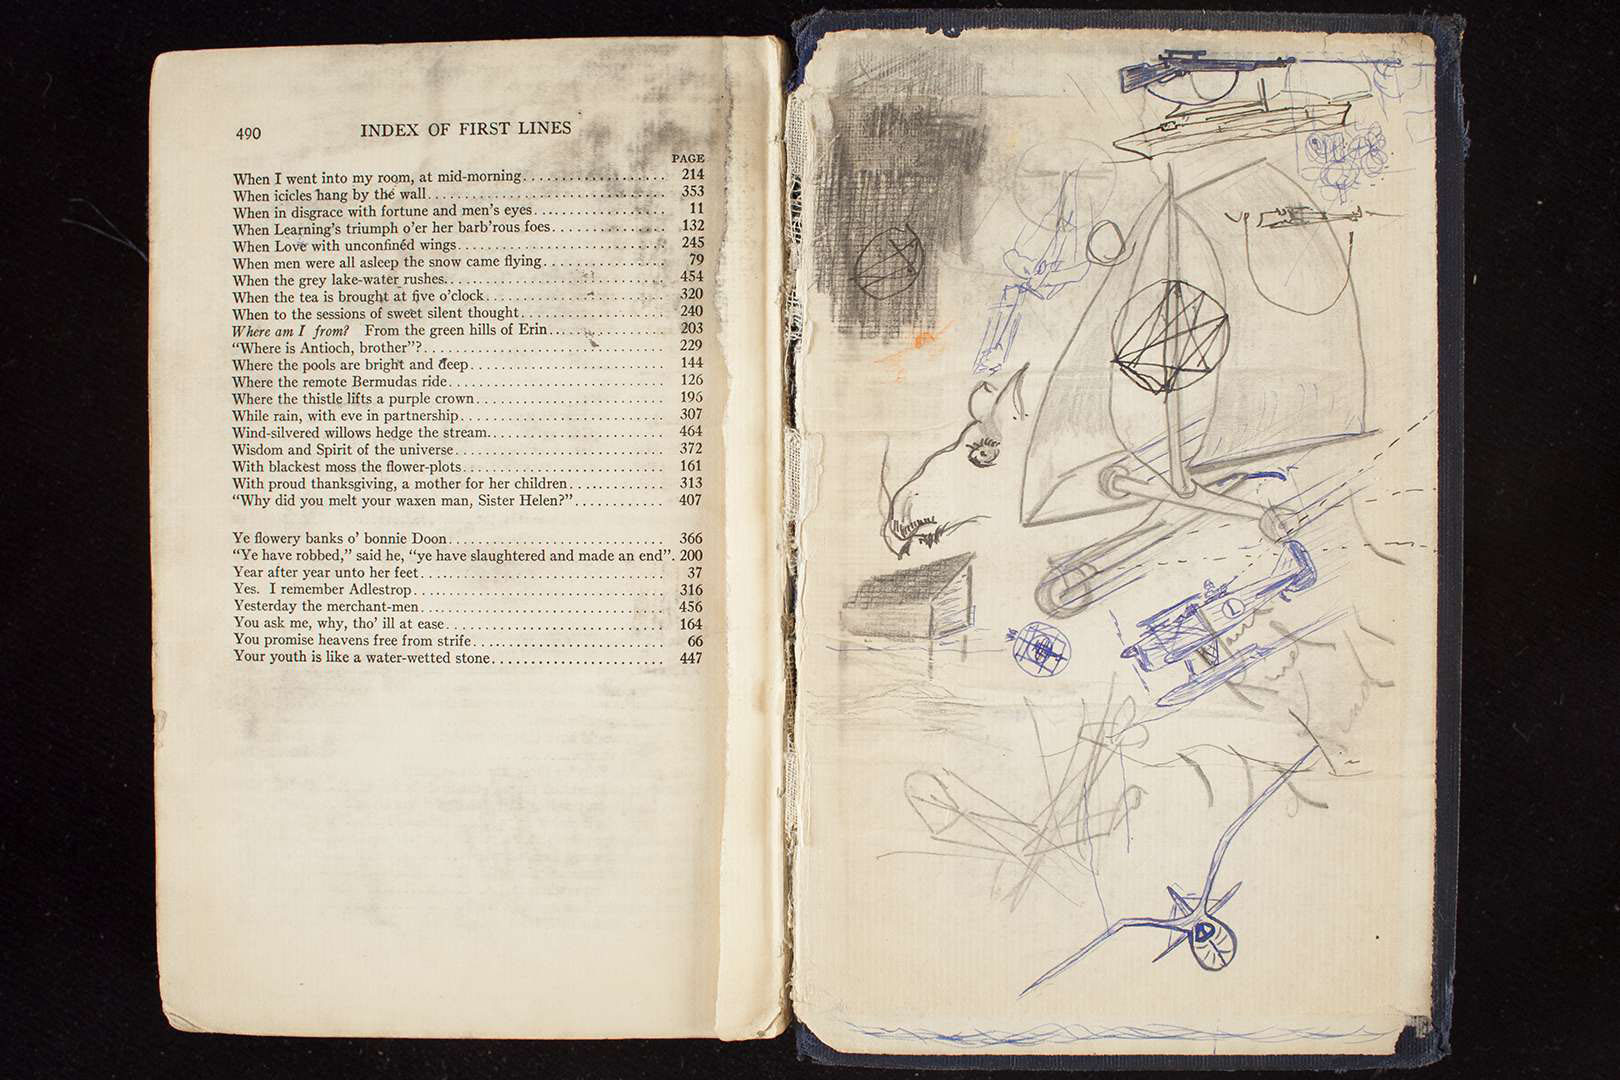 490 INDEX OF FIRST LINES
PAGE
When I went into my room, at mid-morning................... 214
When icicles hang by the wall............................ 353
When in disgrace with fortune and men's eyes................. 11
When Learning's triumph o'er her barb'rous foes.............. 132
When Love with unconfinéd wings......................... 245
When men were all asleep the snow came flying................ 79
When the grey lake-water rushes........................... 454
When the tea is brought at five o'clock...................... 320
When to the sessions of sweet silent thought.................. 240
Where am I from? From the green hills of Erin............... 203
"Where is Antioch, brother"?............................. 229
Where the pools are bright and deep........................ 144
Where the remote Bermudas ride........................... 126
Where the thistle lifts a purple crown....................... 196
While rain, with eve in partnership......................... 307
Wind-silvered willows hedge the stream...................... 464
Wisdom and Spirit of the universe.......................... 372
With blackest moss the flower-plots......................... 161
With proud thanksgiving, a mother for her children............ 313
"Why did you melt your waxen man, Sister Helen?"............ 407
Ye flowery banks o' bonnie Doon........................... 366
"Ye have robbed," said he, "ye have slaughtered and made an end". 200
Year after year unto her feet............................... 37
Yes. I remember Adlestrop................................ 316
Yesterday the merchant-men............................... 456
You ask me, why, tho' ill at ease........................... 164
You promise heavens free from strife........................ 66
Your youth is like a water-wetted stone...................... 447